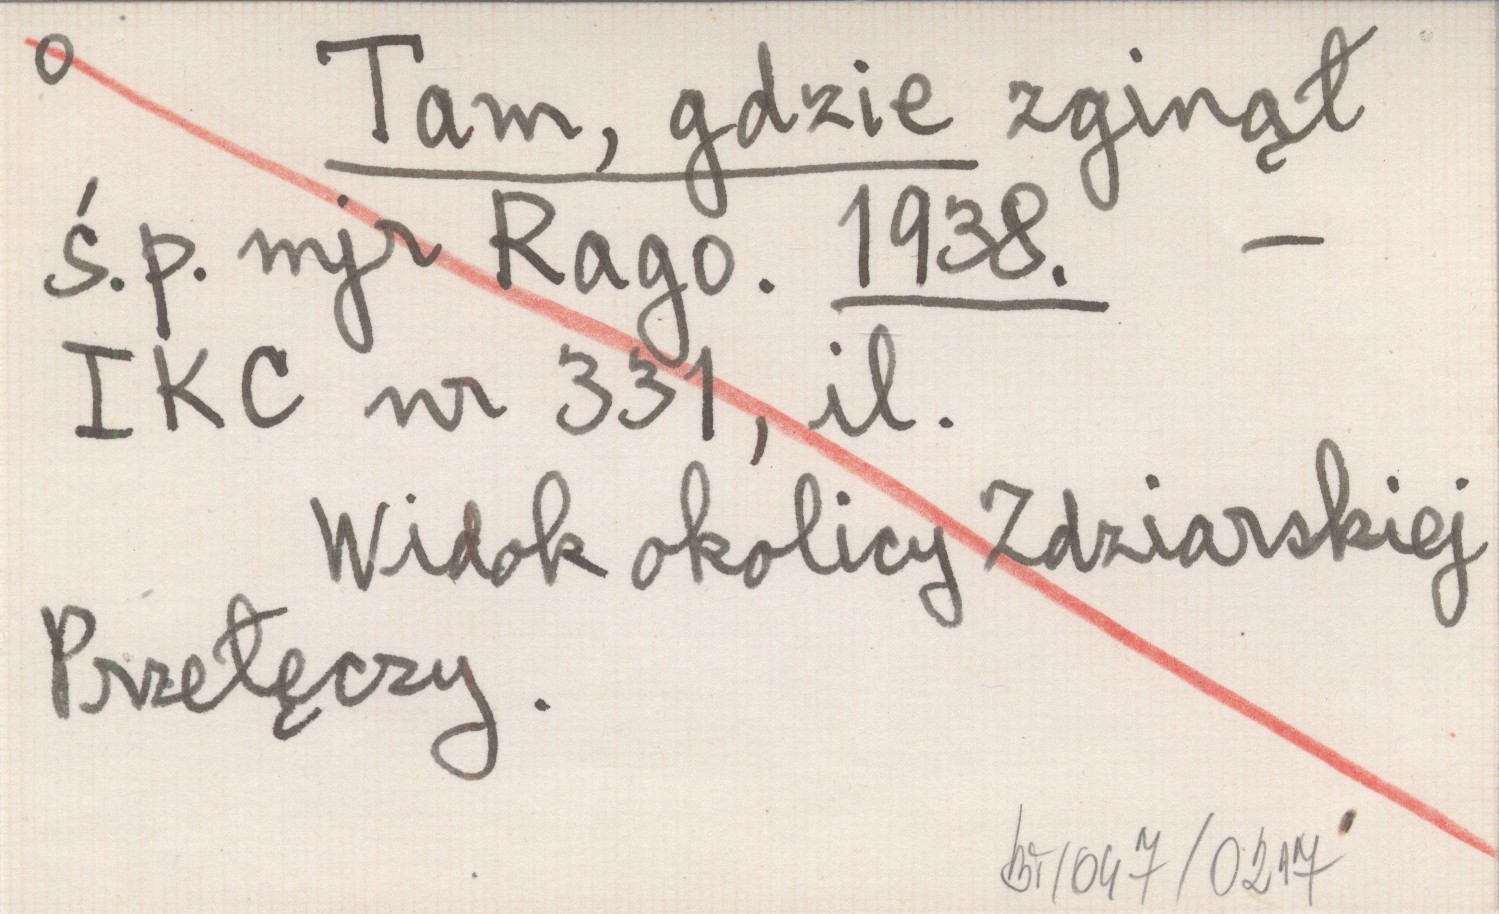 o Tam, gdzie zginął
ś.p. mjr Rago. 1938. –
IKC nr 331, il.
Widok okolicy Zdziarskiej
Przełęczy.
/047/0217